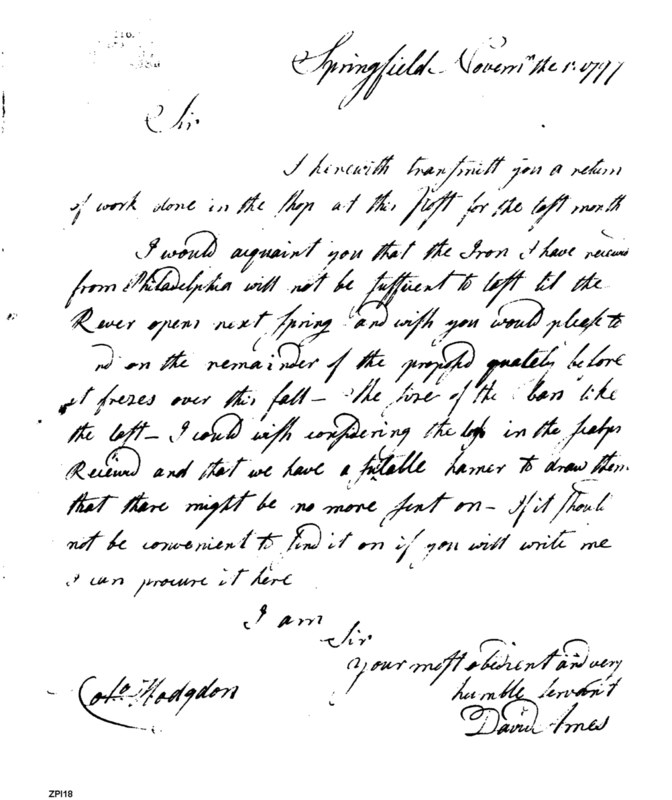 Springfield Novemr the 1st 1797
Sir
I herewith transmitt you a return
of work done in the shop at this Post for the last month
I would acquaint you that the Iron I have receivd
from Philadelphia will not be suffient to last til the
River opens next spring and wish you would please to
nd on the remainder of the proposd quately before
it frezes over this fall – the size of the bars like
the last – I could wish considering the loss in the
Receivd and that we have a sutable hamer to draw them
that thare might be no more sent on – If it should
not be convenient to send it on if you will write me
I can procure it here
I am
Sir
your most obedient and very
humble servant
David Ames
Colo. Hodgdon
ZPI18